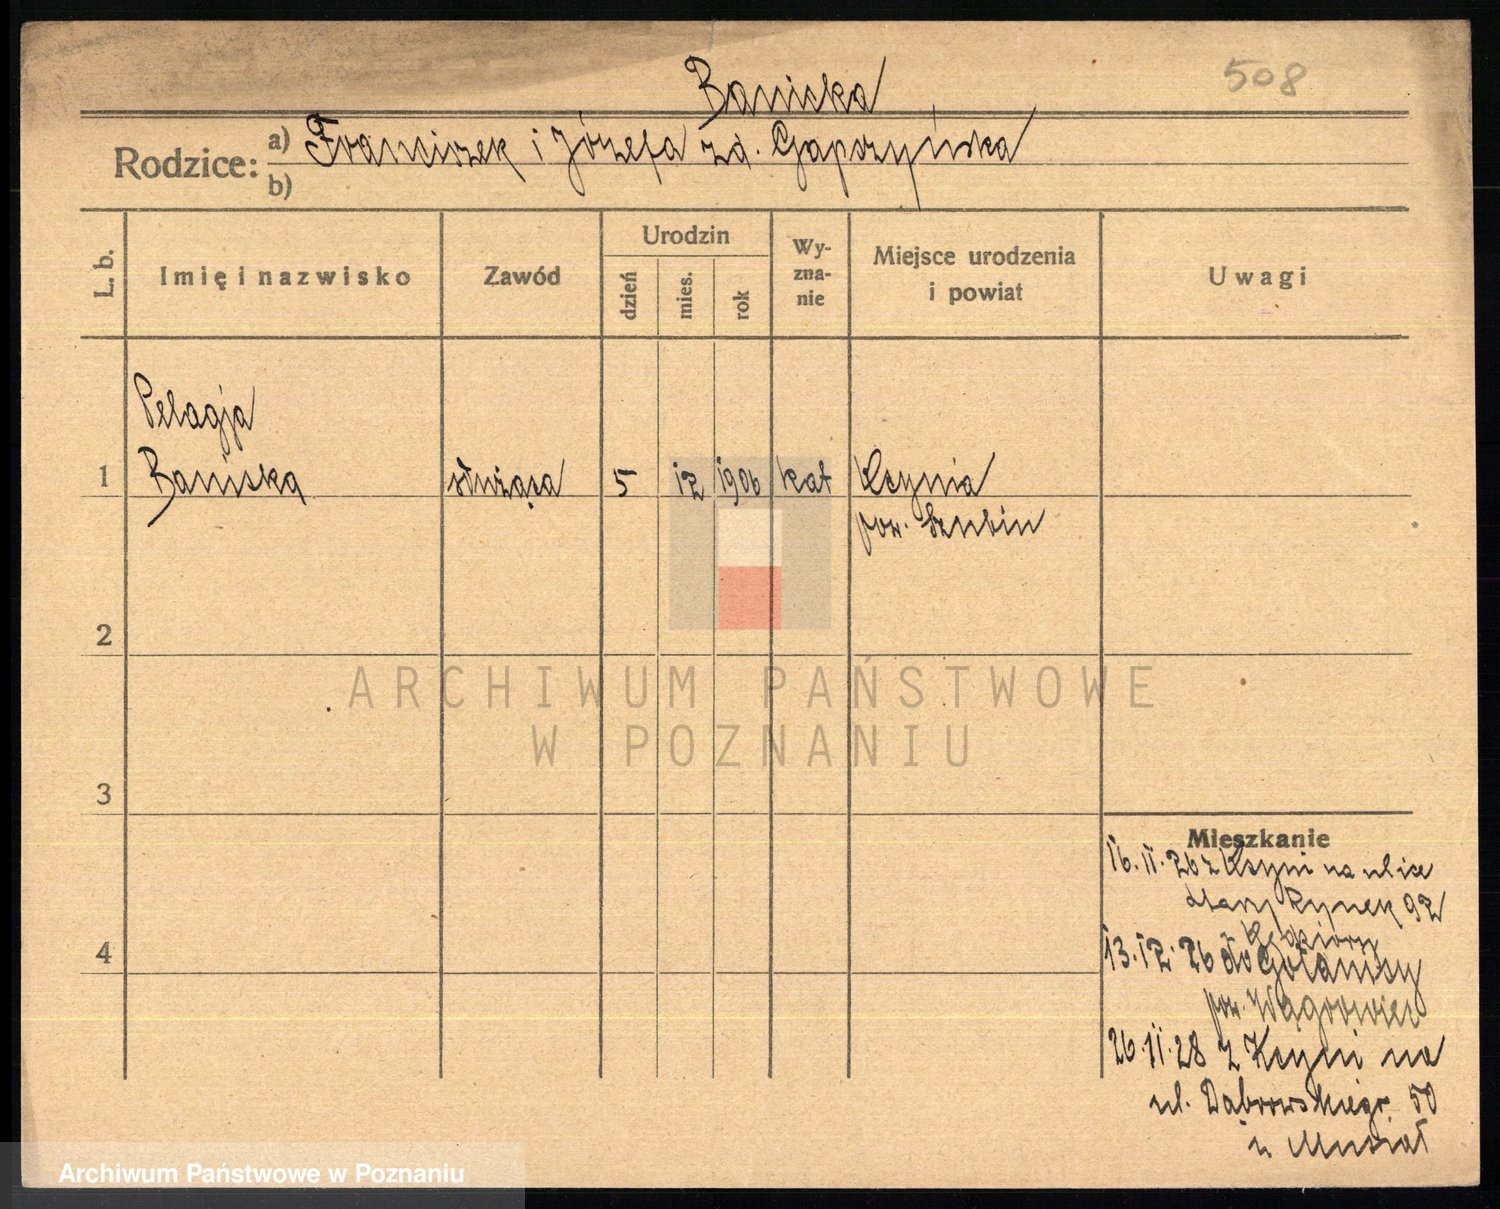 508
Banicka
Rodzice: a) Franciszek i Józefa zd. Gapczyńska
b)
L. b.
Imię i nazwisko
Zawód
Urodzin
dzień
mies.
rok
Wy-
zna-
nie
Miejsce urodzenia
i powiat
Uwagi
Pelagja
1 Banicka służąca 5 12 1906 kat Kcynia
pow. Szubin
2
ARCHIWUM PAŃSTWOWE
W POZNANIU
3
Mieszkanie
16.11.26 z Kcyni na ulice
Stary Rynek 92
4
13.12.26 do Gołańczy
pow. Wągrowiec
26.11.28 z Kcyni na
ul. Dąbrowskiego 50
u Musiał
Archiwum Państwowe w Poznaniu